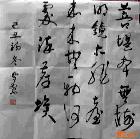 菩提本無樹
明鏡亦非臺
本來無一物何
處惹塵埃
己丑初冬